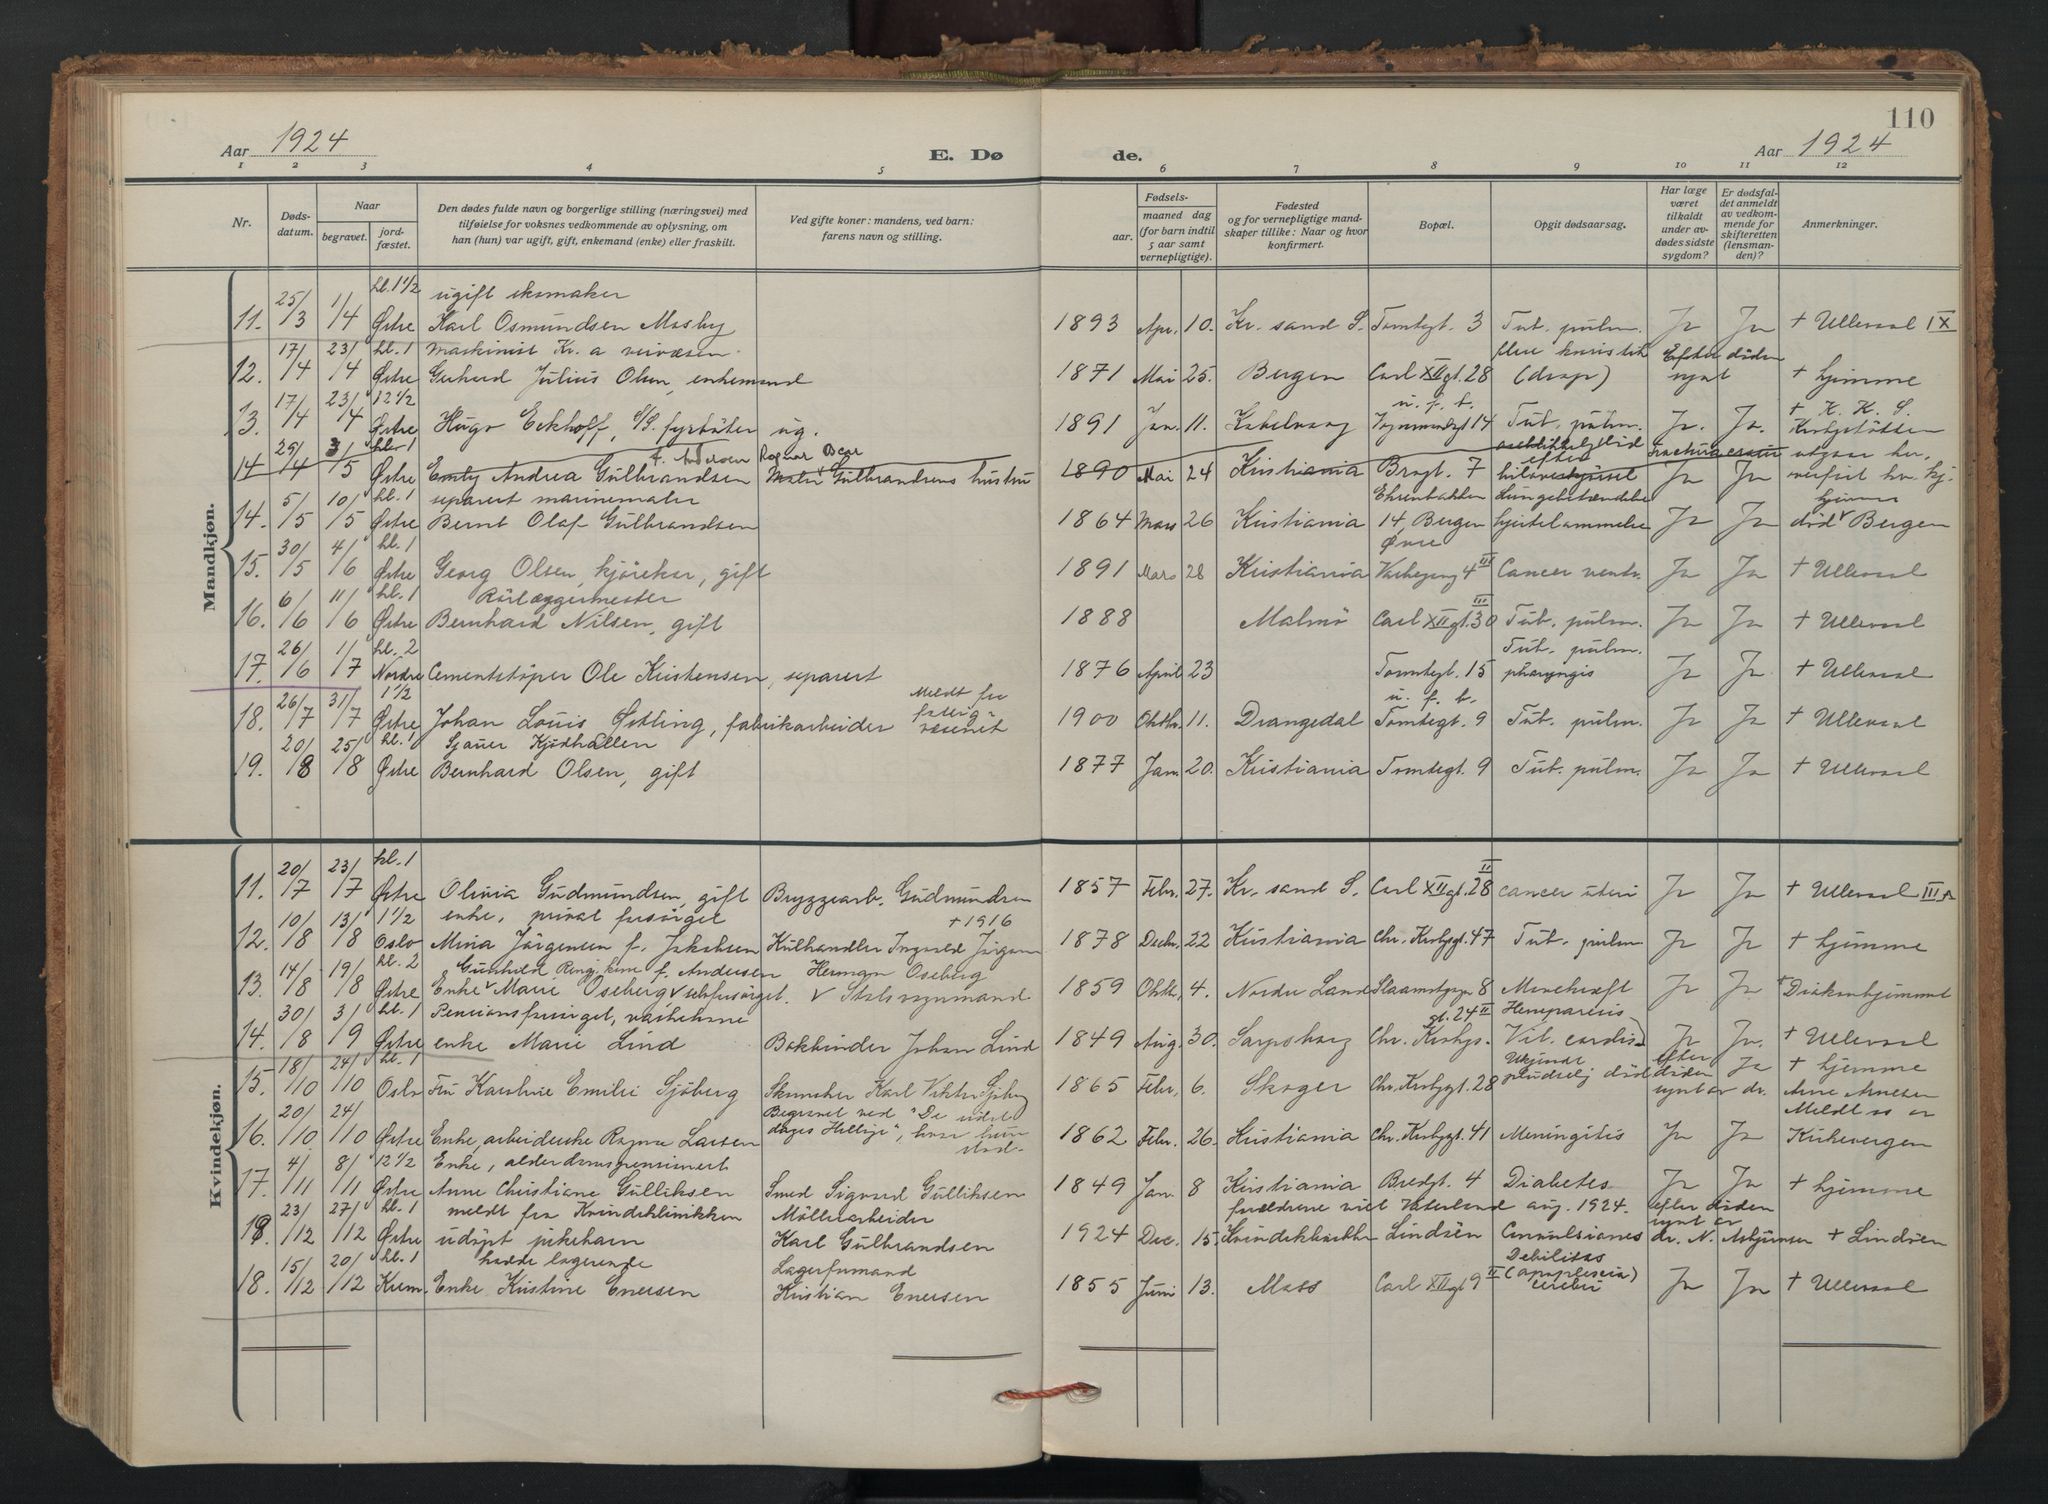 110
Aar 1924
E. Dø
de.
Aar 1924
1 2 3 4 5 6 7 8 9 10 11 12
Nr.
Døds-
datum.
Naar
begravet.
jord-
fæstet.
Den dødes fulde navn og borgerlige stilling (næringsvei) med
tilføielse for voksnes vedkommende av oplysning, om
han (hun) var ugift, gift, enkemand (enke) eller fraskilt.
Ved gifte koner: mandens, ved barn:
farens navn og stilling.
Fødsels-
aar.
maaned
dag
(for barn indtil
5 aar samt
vernepligtige).
Fødested
og for vernepligtige mand-
skaper tillike: Naar og hvor
konfirmert.
Bopæl.
Opgit dødsaarsag.
Har læge
været
tilkaldt
under av-
dødes sidste
sygdom?
Er dødsfal-
det anmeldt
av vedkom-
mende for
skifteretten
(lensman-
den)?
Anmerkninger.
Mandkjøn.
kl. 1 1/2 ugift
11. 25/3 1/4 Østre Karl Osmundsen Mosby 1893 Apr. 10. Kr. sand S. Tomtegt. 3 Tub. pulm. Ja Ja + Ullevaal IX
kl. 1 maskinist Kr. a veivæsen Efter døden
12. 17/4 23/4 Østre Gerhard Julius Olsen, enkemand 1871 Mai 25. Bergen Carl XII gt. 28 (drap) synt + hjemme
12 1/2 u. f. b. + K. K. S.
13. 17/4 23/4 Østre Hugo Eckhoff, S/S. fyrbøter ug. 1891 Jan. 11. Kabelvaag 14 Tub. pulm. Ja. Ja.
kl. 1 f. Andersen Ragnar efter utgaar her,
14 25/4 3/5 Østre Emly Andrea Gulbrandsen Gulbrandsens hustru 1890 Mai 24 Kristiania Bregt. 7 Ja Ja
kl. 1 separert marinemaler Lungebetændelse hjemme
14. 5/5 10/5 Østre Bernt Olaf Gulbrandsen 1864 Mars 26 Kristiania 14, Bergen hjertelammelse Ja Ja død Bergen
kl. 1 Øvre
15. 30/5 4/6 Østre Georg Olsen, kjørekar, gift 1891 Mars 28 Kristiania 4 III Cancer ventr. Ja Ja + Ullevaal
kl. 1 Rørlæggermester III
16. 6/6 11/6 Østre Bernhard Nilsen, gift 1888 Malmö Carl XII gt. 30 Tub. pulm. Ja Ja + Ullevaal
kl. 2 Tub. pulm.
17. 26/6 1/7 Nordre Cementstøper Ole Kristensen, separert 1876 April 23 Tomtegt. 15 pharyngis Ja Ja. + Ullevaal
1 1/2 Meldt fra fattig- væsenet u. f. b.
18. 26/7 31/7 Østre Johan Louis Østling, fabrikarbeider 1900 Oktbr. 11. Drangedal Tomtegt. 9 Tub. pulm. Ja Ja + Ullevaal
kl. 1 Sjauer Kjødhallen
19. 20/8 25/8 Østre Bernhard Olsen, gift 1877 Jan. 20. Kristiania Tomtegt. 9 Tub. pulm. Ja Ja + Ullevaal
Kvindekjøn.
kl. 1 II
11. 20/7 23/7 Østre Olivia Gudmundsen, gift Bryggearb. Gudmundsen 1857 Febr. 27. Kr. sand S. Carl XII gt. 28 cancer uteri Ja Ja + Ullevaal III
1 1/2 enke, privat forsørget +1916
12. 10/8 13/8 Oslo Mina Jørgensen f. Jakobsen Kulhandler Ingvald Jørgensen 1878 Decbr. 22 Kristiania Chr. Krohgsgt. 47 Tub. pulm Ja Ja + hjemme
kl. 2 Gunhild f. Andersen Herman Oseberg
13. 14/8 19/8 Østre Enke Marie Oseberg, selvforsørget. 1859 Oktbr. 4. Nordre Land 8 Ja Ja Diakonhjemmet
kl. 1 Pensionsforsørget, vaskekone gt. 24 II Hemiparesis
14. 30/8 3/9 Østre enke Marie Lind Bokbinder Johan Lind 1849 Aug. 30. Sarpsborg Chr. Krohgs. Vit. cordis Ja Ja. + Ullevaal
kl. 1 Ukjendt efter Ja + hjemme
15. 18/10 24/10 Oslo Fru Karoline Emilie Sjöberg Karl Viktor Sjöberg 1865 Febr. 6. Skoger Chr. Krohgsgt. 28 pludselig død døden synt av dr. Arne Arnesen
Begravet ved "De sidste Meldt
dages Hellige", hvor hun stod.
16. 20/10 24/10 Østre Enke, arbeiderske Ragna Larsen 1862 Febr. 26. Kristiania Chr. Krohgsgt. 41 Meningitis Ja Ja Kirkevergen
12 1/2 Enke, alderdomspensionert
17. 4/11 8/11 Østre Anne Christiane Gulliksen Smed Sigvard Gulliksen 1849 Jan. 8 Kristiania Bredgt. 4 Diabetes Ja Ja + hjemme
kl. 1 meldt fra Kvindeklinikken Møllerarbeider forældrene viet Vaterland aug. 1924. efter døden
18. 23/12 27/12 Østre udøpt pikebarn Karl Gulbrandsen 1924 Dec. 15. Lindøen Convulsiones synt av dr. N. + Lindøen
kl. 1 hadde lagerende Lagerformand Debilitas
18. 15/12 20/12 Krem. Enke Kristine Enersen Kristian Enersen 1855 Juni 13. Moss Carl XII gt 9 II (apoplexia) cerebri Ja Ja + Ullevaal